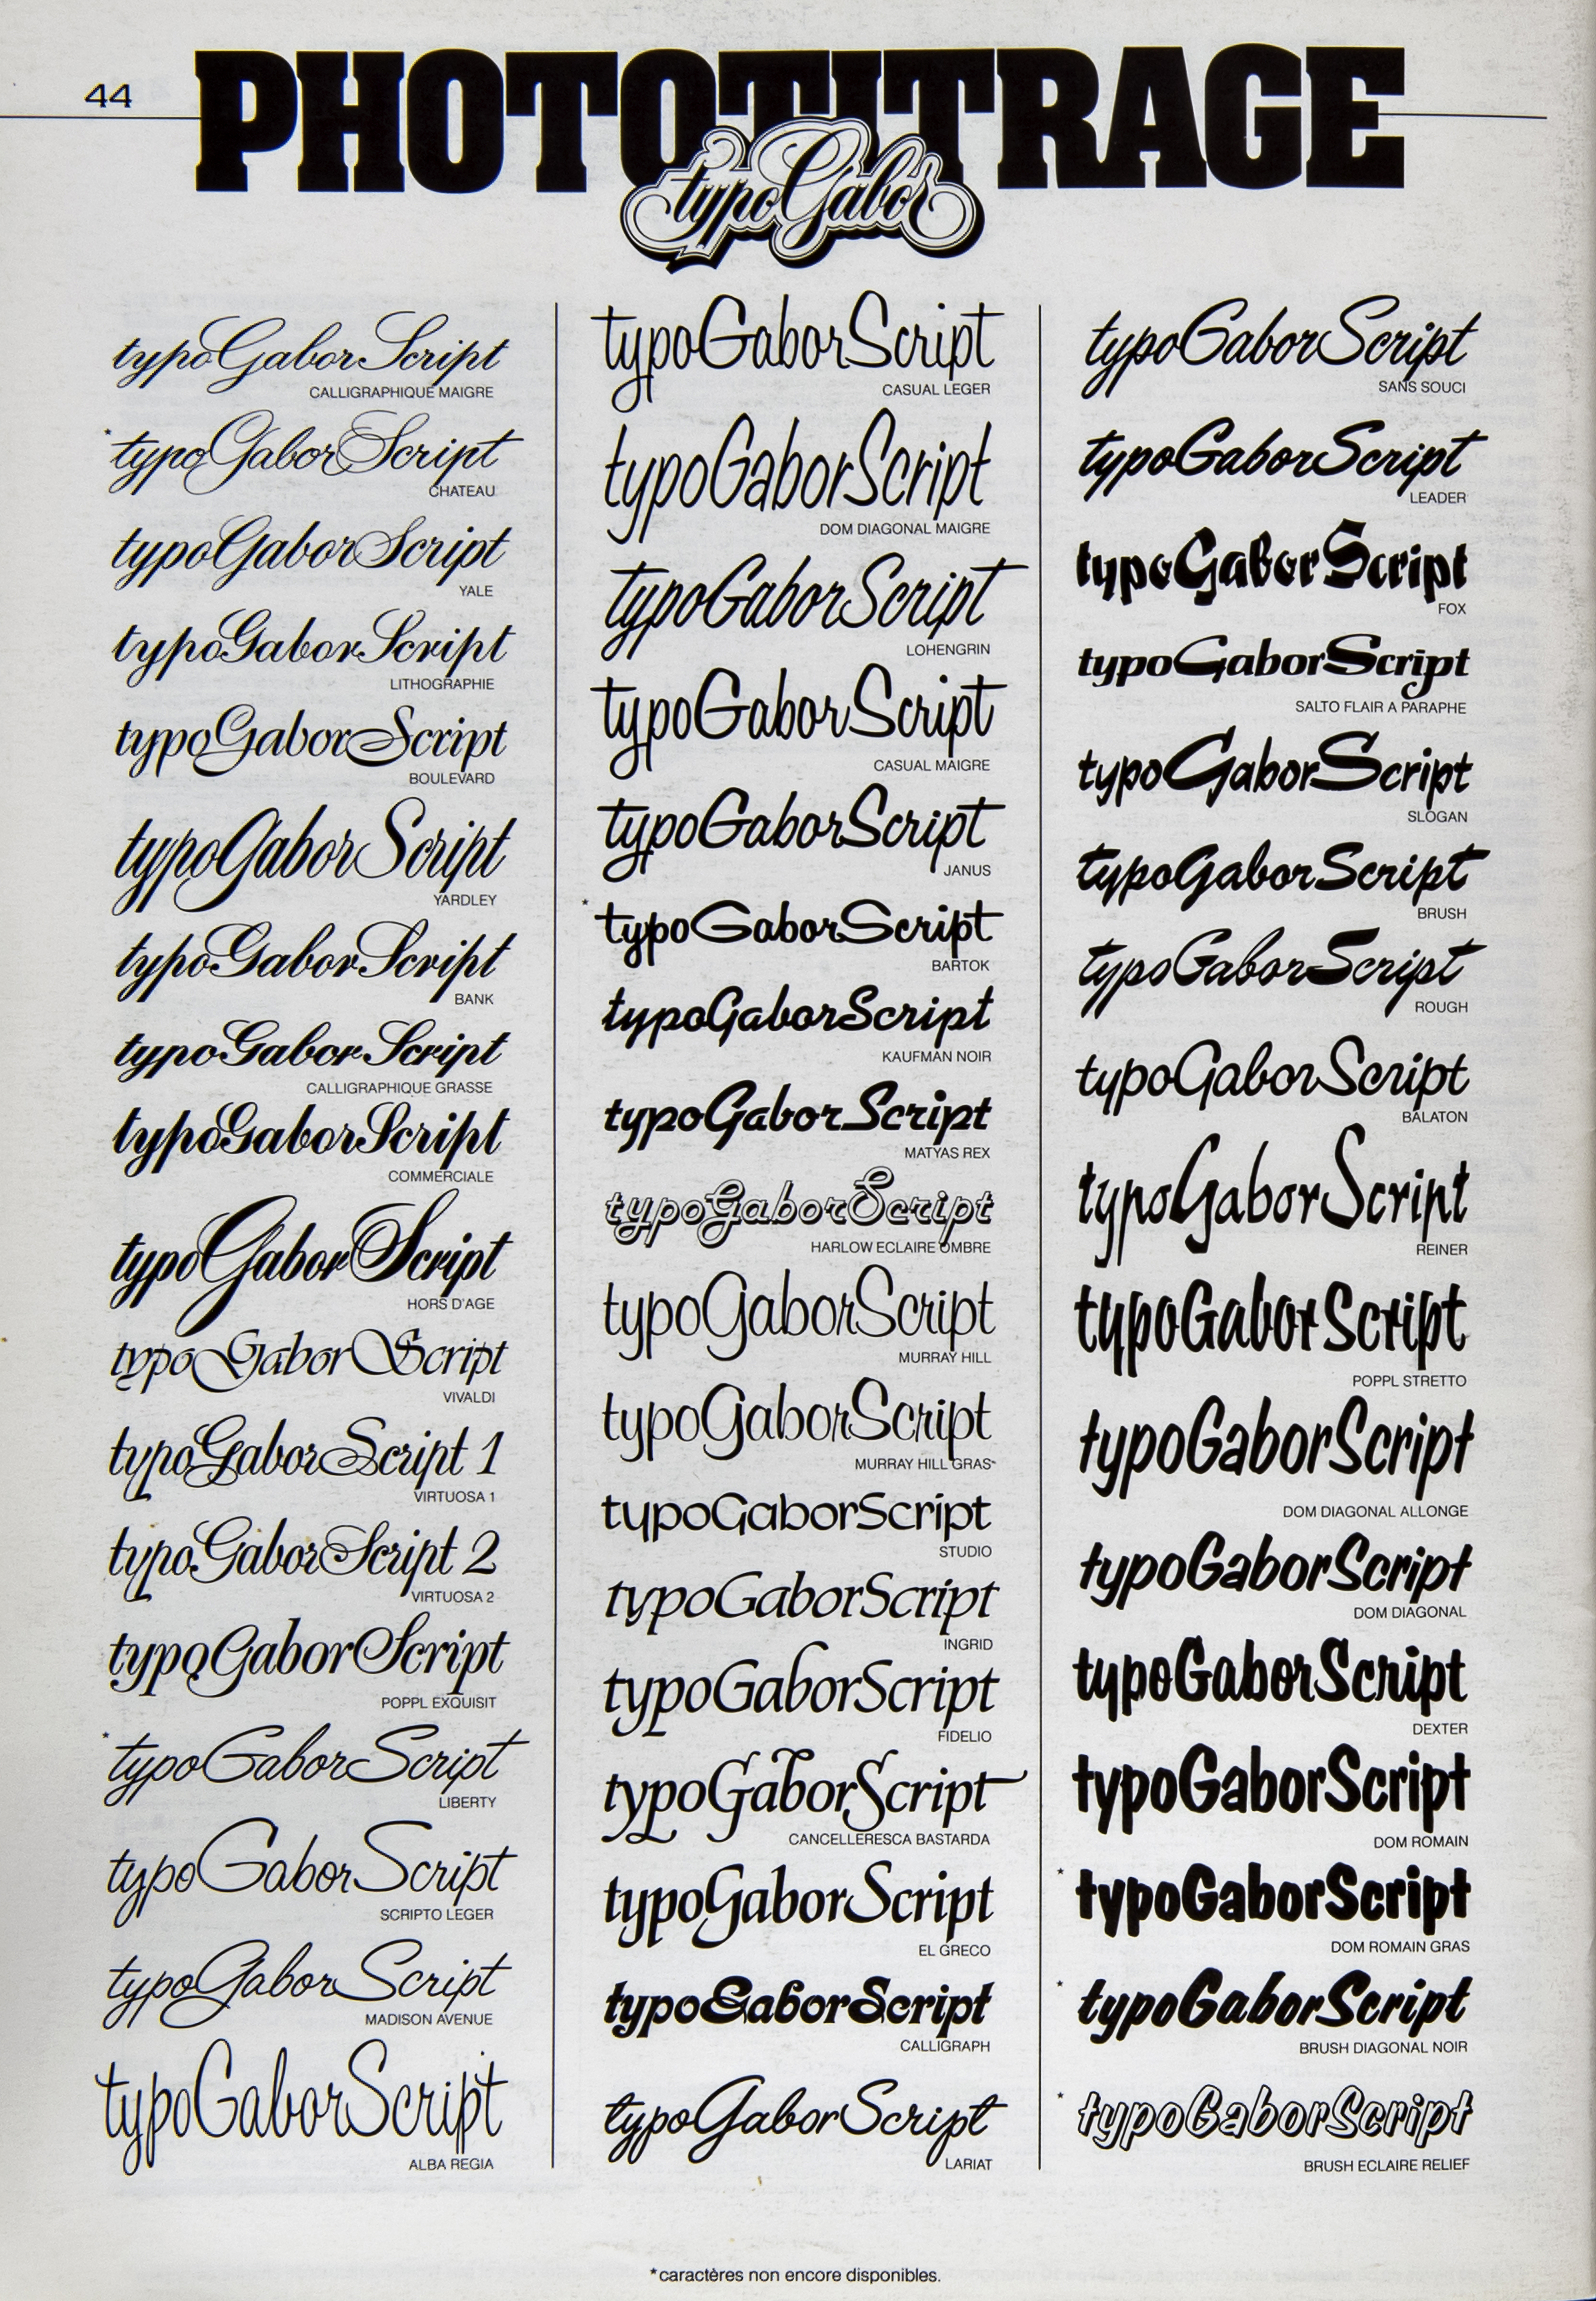 44
PHOTOTITRAGE
typoGabor
typoGaborScript
CALLIGRAPHIQUE MAIGRE
* typoGaborScript
CHATEAU
typoGaborScript
YALE
typoGaborScript
LITHOGRAPHIE
typoGaborScript
BOULEVARD
typoGaborScript
YARDLEY
typoGaborScript
BANK
typoGaborScript
CALLIGRAPHIQUE GRASSE
typoGaborScript
COMMERCIALE
typoGaborScript
HORS D'AGE
typoGaborScript
VIVALDI
typoGaborScript 1
VIRTUOSA 1
typoGaborScript 2
VIRTUOSA 2
typoGaborScript
POPPL EXQUISIT
* typoGaborScript
LIBERTY
typoGaborScript
SCRIPTO LEGER
typoGaborScript
MADISON AVENUE
typoGaborScript
ALBA REGIA
typoGaborScript
CASUAL LEGER
typoGaborScript
DOM DIAGONAL MAIGRE
typoGaborScript
LOHENGRIN
typoGaborScript
CASUAL MAIGRE
typoGaborScript
JANUS
* typoGaborScript
BARTOK
typoGaborScript
KAUFMAN NOIR
typoGaborScript
MATYAS REX
typoGaborScript
HARLOW ECLAIRE OMBRE
typoGaborScript
MURRAY HILL
typoGaborScript
MURRAY HILL GRAS*
typoGaborScript
STUDIO
typoGaborScript
INGRID
typoGaborScript
FIDELIO
typoGaborScript
CANCELLERESCA BASTARDA
typoGaborScript
EL GRECO
typoGaborScript
CALLIGRAPH
typoGaborScript
LARIAT
typoGaborScript
SANS SOUCI
typoGaborScript
LEADER
typoGaborScript
FOX
typoGaborScript
SALTO FLAIR A PARAPHE
typoGaborScript
SLOGAN
typoGaborScript
BRUSH
typoGaborScript
ROUGH
typoGaborScript
BALATON
typoGaborScript
REINER
typoGaborScript
POPPL STRETTO
typoGaborScript
DOM DIAGONAL ALLONGE
typoGaborScript
DOM DIAGONAL
typoGaborScript
DEXTER
typoGaborScript
DOM ROMAIN
* typoGaborScript
DOM ROMAIN GRAS
* typoGaborScript
BRUSH DIAGONAL NOIR
* typoGaborScript
BRUSH ECLAIRE RELIEF
*caractères non encore disponibles.